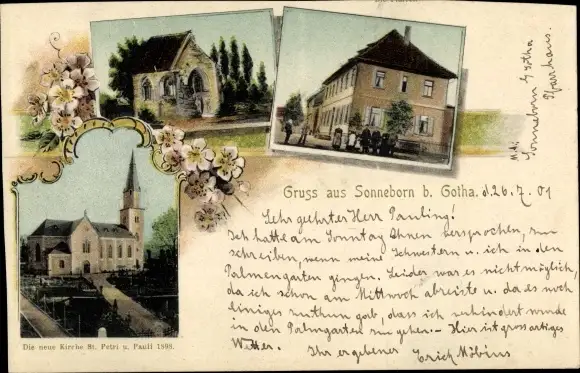 Gruss aus Sonneborn b. Gotha. d. 26. 7. 01
Sehr geehrter Herr Pauling!
Ich hatte am Sonntag Ihnen versprochen, zu
schreiben, wenn meine Schwestern u. ich in den
Palmengarten gingen. Leider war es nicht möglich,
da ich schon am Mittwoch abreiste u. da es noch
einiges zu thun gab, dass ich verhindert wurde
in den Palmgarten zu gehen. – Hier ist grossartiges
Wetter. Ihr ergebener Erich Möbius
Sonneborn b/Gotha
Pfarrhaus.
Die neue Kirche St. Petri u. Pauli 1898.